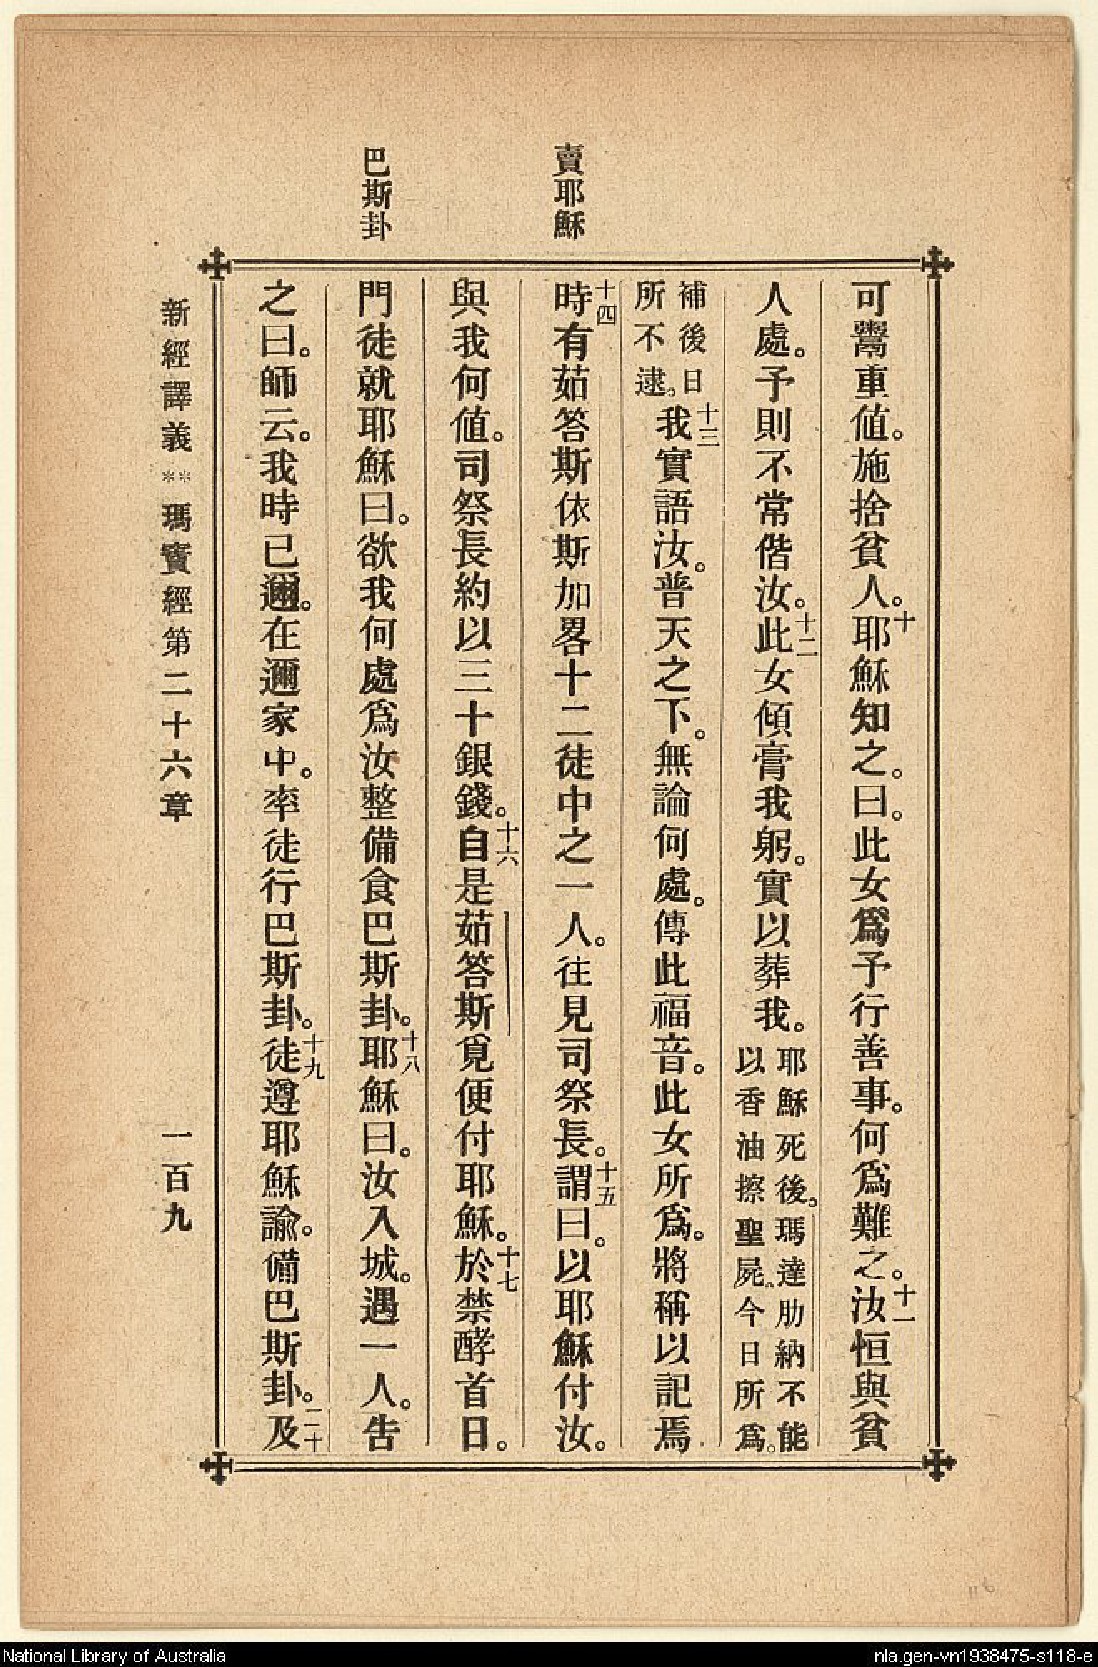 賣耶穌
巴斯卦
可鬻重値。施捨貧人。十耶穌知之。曰。此女爲予行善事。何爲難之。十一汝恒與貧
人處。予則不常偕汝。十二此女傾膏我躬。實以葬我。耶穌死後。瑪達肋納不能
以香油擦聖屍。今日所爲。
補後日
所不逮。十三我實語汝。普天之下。無論何處。傳此福音。此女所爲。將稱以記焉
十四時有茹答斯依斯加畧十二徒中之一人。往見司祭長。十五謂曰。以耶穌付汝。
與我何値。司祭長約以三十銀錢。十六自是茹答斯覓便付耶穌。十七於禁酵首日。
門徒就耶穌曰。欲我何處爲汝整備食巴斯卦。十八耶穌曰。汝入城。遇一人。告
之曰。師云。我時已邇。在邇家中。率徒行巴斯卦。十九徒遵耶穌諭。備巴斯卦。二十及
新經譯義**瑪竇經第二十六章 一百九
National Library of Australia
nla.gen-vn1938475-s118-e